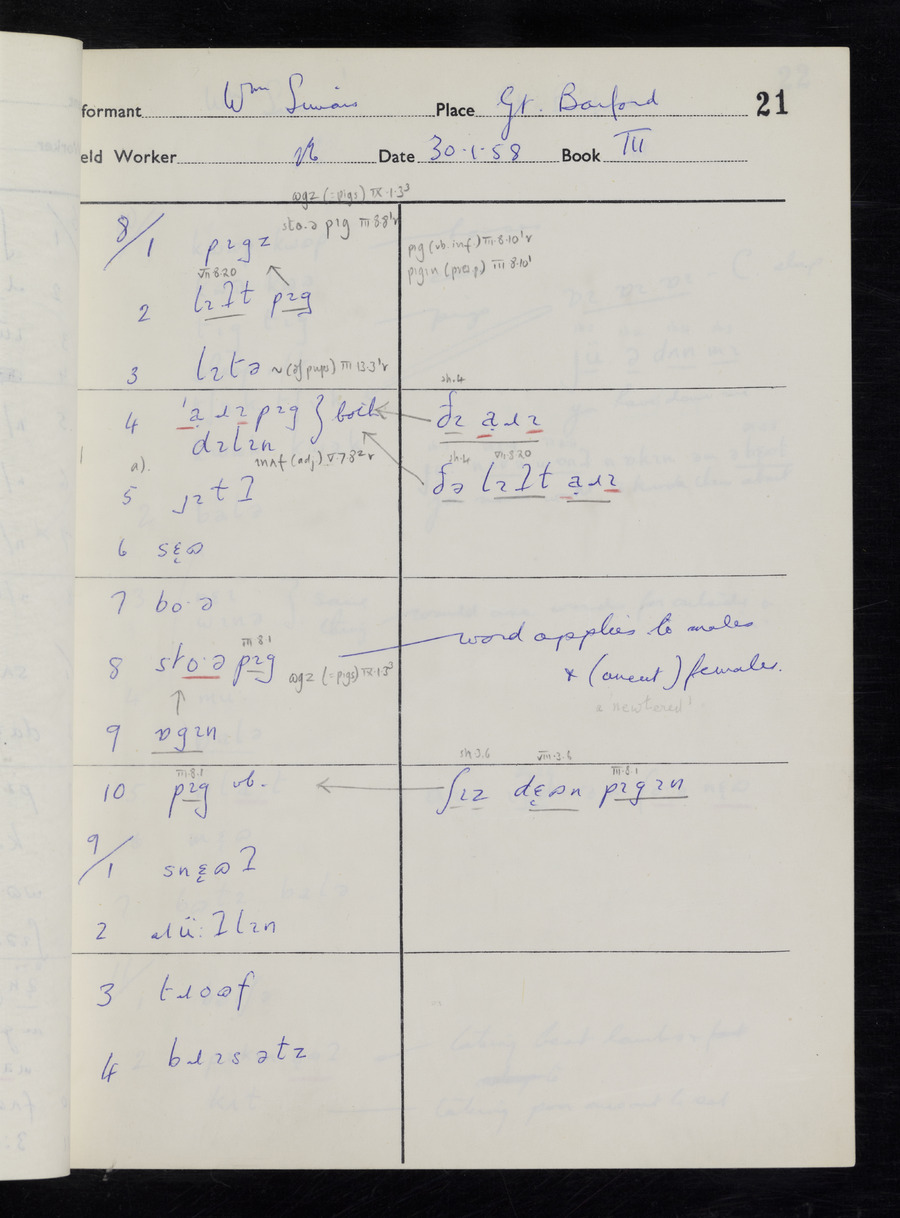 formant Wm Place Gt. Barford 21
eld Worker Date 30.1.58 Book III
ɷgz (=pigs) IX.1.3³
8/1 pɪgz stɔ.ə pɪg III 8.8¹r
pɪg (vb.inf.) III.8.10¹r
pɪgɪn (presp) III 8.10¹
VII 8.20
2 lɪɫt pɪg
3 lɪtə ~ (of pups) III 13.3¹r
sh.4
4 ˈa̤ɹɪ pɪg } both ðɪ a̤ɹɪ
dɪlɪn
a). ɪnʌf (adj) V 7 8²r
sh.4 VII.8.20
5 jɪtɫ ðə lɪɫt a̤ɹɪ
6 sɛ̨ɷ
7 bo·ə
word applies to males
III 8.1
8 sto·ə pɪg ɷgz (=pigs) IX.1.3³
& (uncut) females.
9 ɒgɪn
sh.3.6 VIII.3.6 III.8.1
III.8.1
10 pɪg vb. ʃɪz dɛ̨ɷn pɪgɪn
9/1 snɛ̨ɷɫ
2 əɹü:ɫɪn
3 tɹoɷf
4 bɹɪsətz